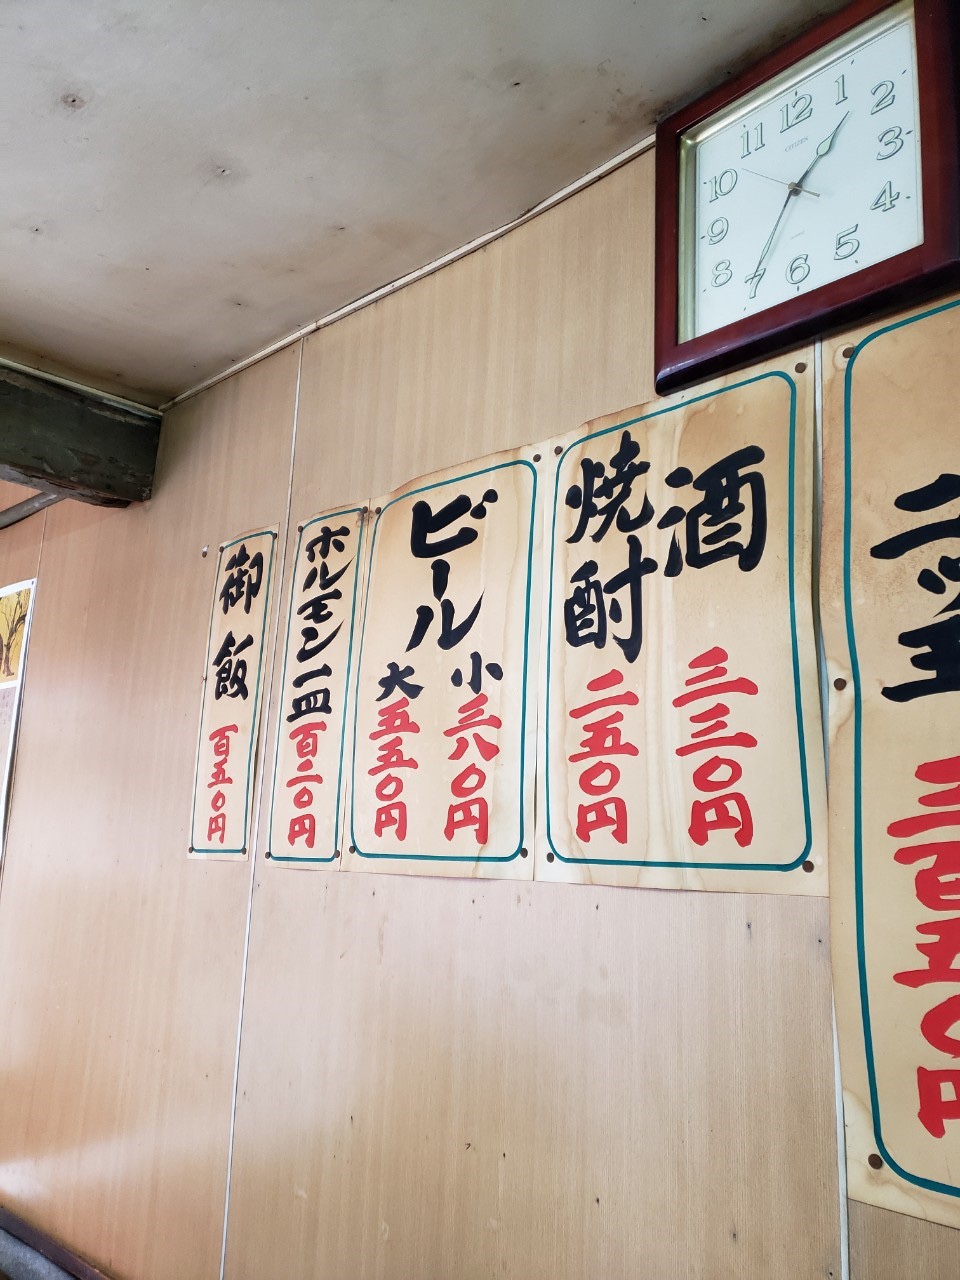 12
1
2
3
4
5
6
7
8
9
10
11
CITIZEN
三百五0円
酒 三三〇円
焼酎 二五〇円
ビール
小 三八〇円
大 五五〇円
ホルモン一皿 百二〇円
御飯 百五〇円